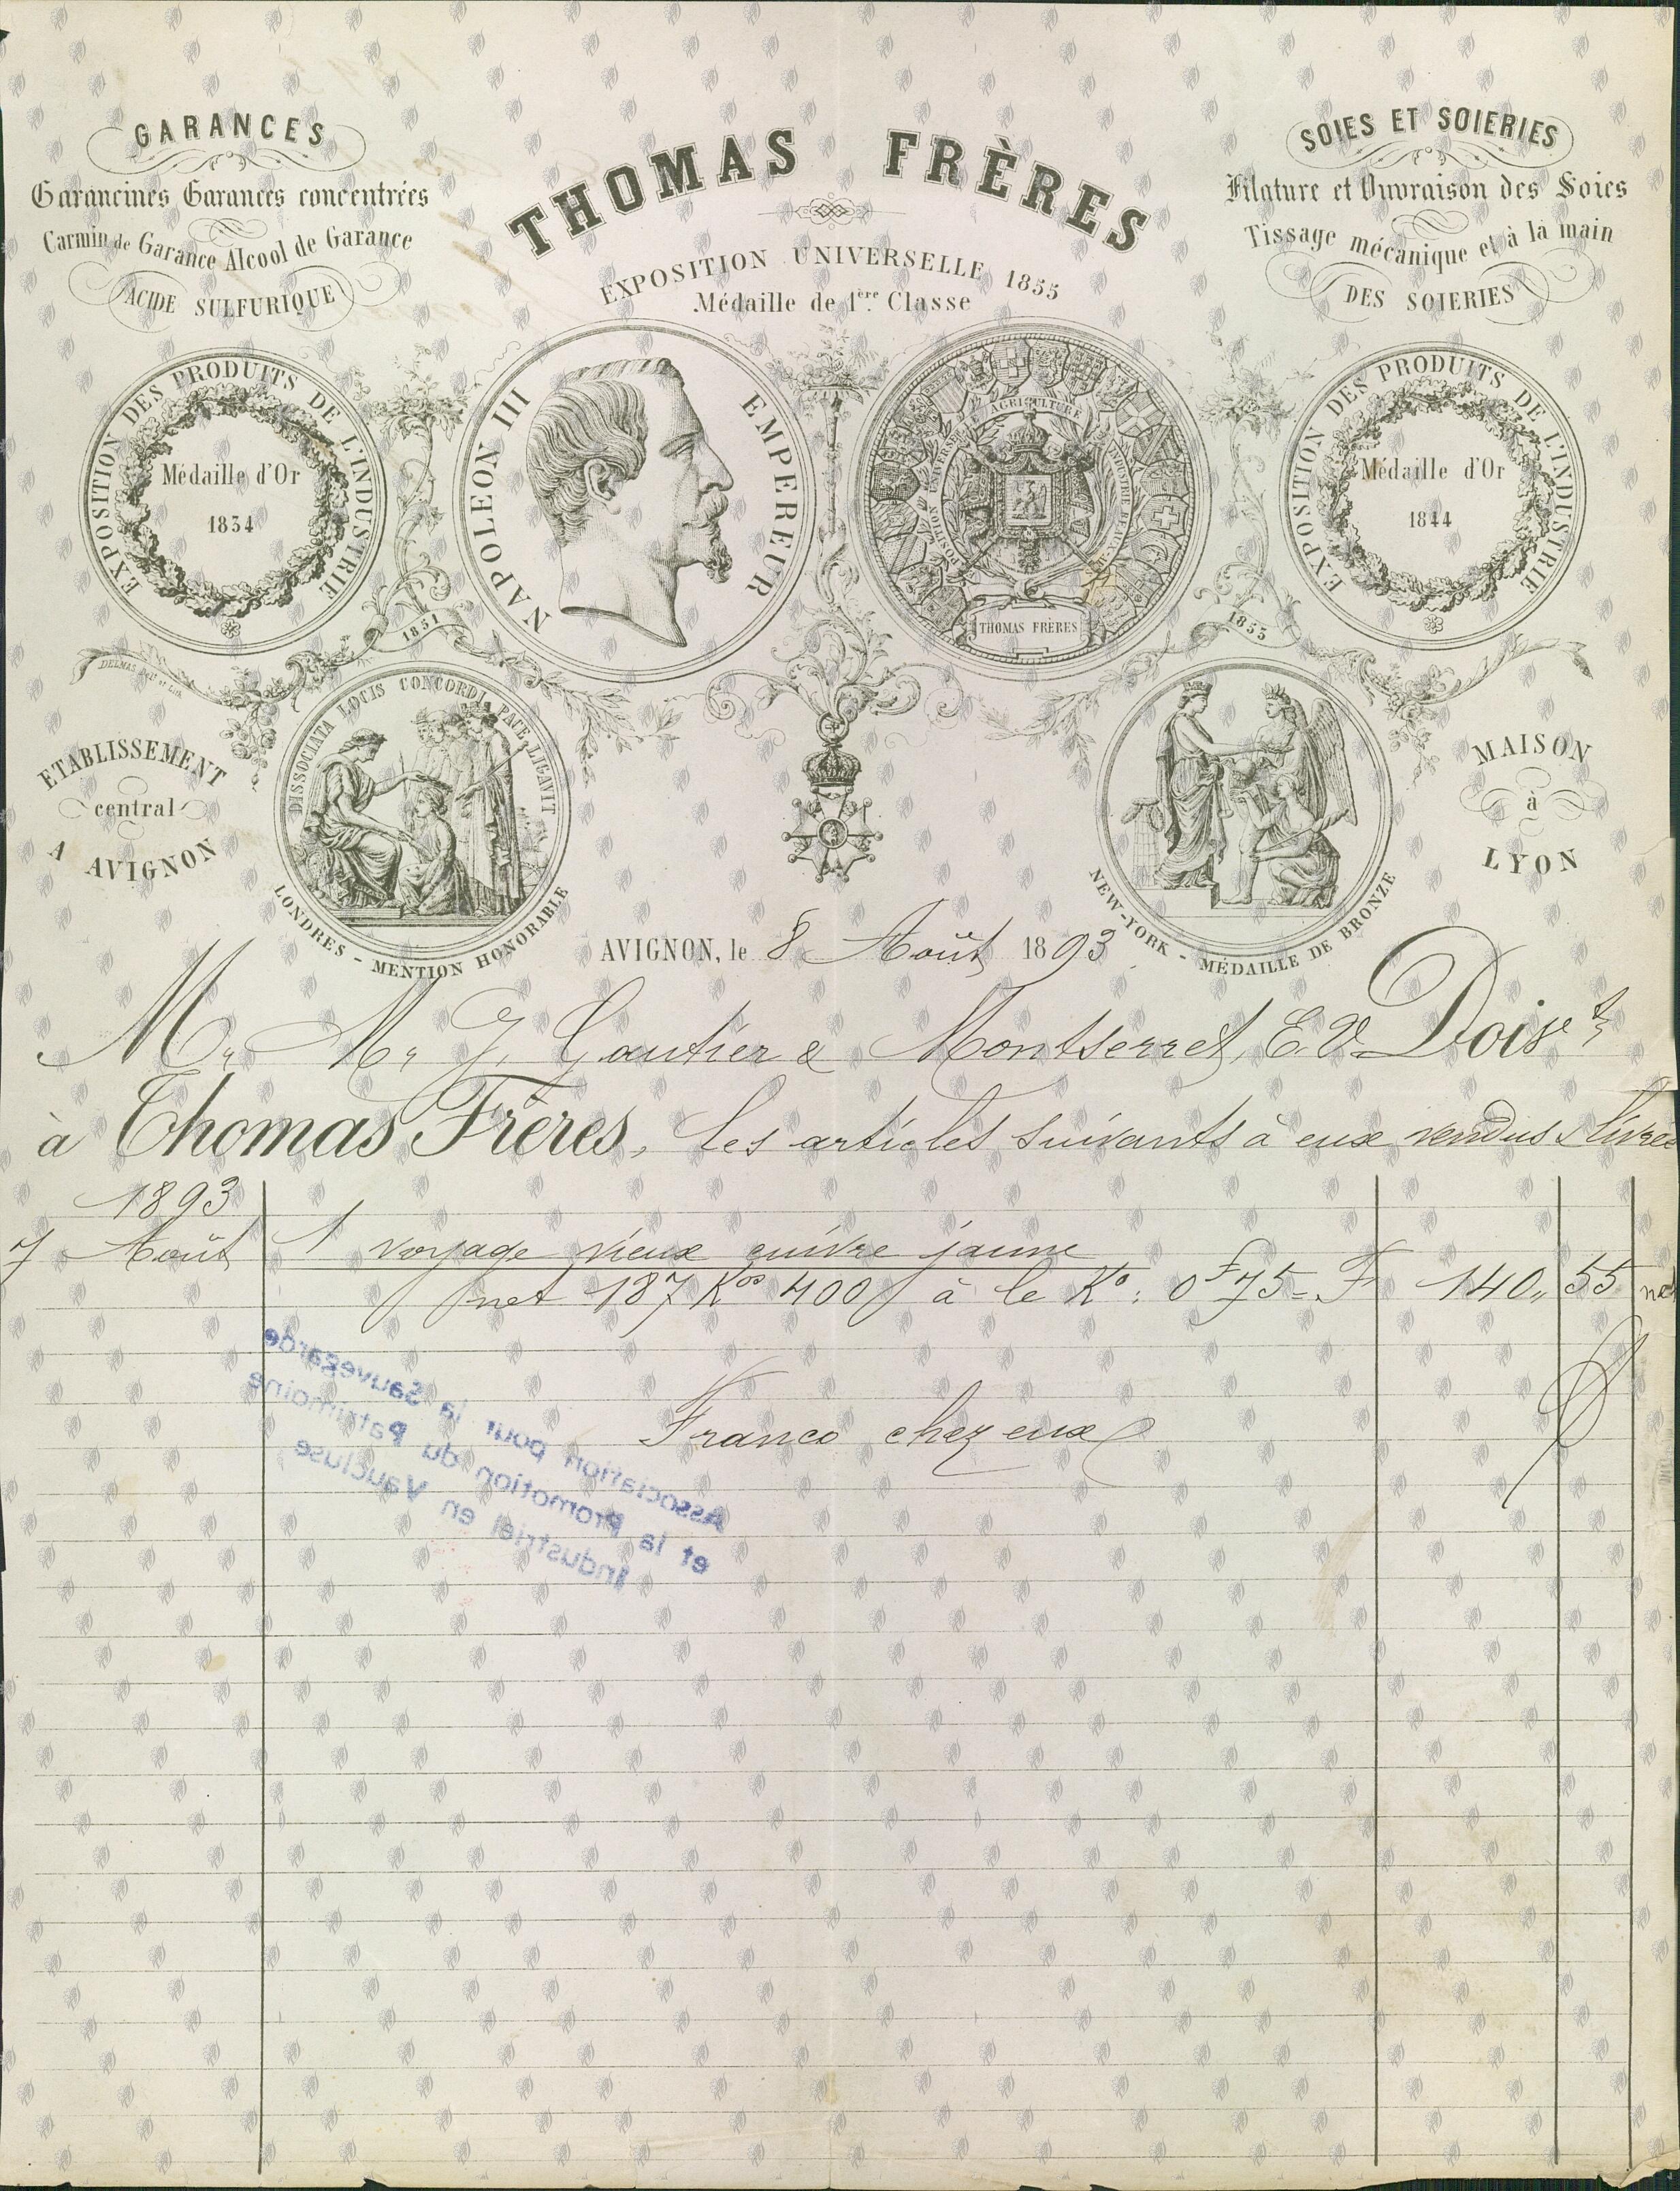 GARANCES
Garancines Garances concentrées
Carmin de Garance Alcool de Garance
ACIDE SULFURIQUE
THOMAS FRÈRES
EXPOSITION UNIVERSELLE 1855
Médaille de 1ère Classe
SOIES ET SOIERIES
Filature et Ouvraison des Soies
Tissage mécanique et à la main
DES SOIERIES
EXPOSITION DES PRODUITS DE L'INDUSTRIE
Médaille d'Or
1834
NAPOLEON III EMPEREUR
AGRICULTURE
THOMAS FRÈRES
EXPOSITION DES PRODUITS DE L'INDUSTRIE
Médaille d'Or
1844
1851
1855
DELMAS
ETABLISSEMENT
central
A AVIGNON
DISSOCIATA LOCIS CONCORDI PACE LIGAVIT
LONDRES - MENTION HONORABLE
NEW-YORK - MÉDAILLE DE BRONZE
MAISON
à
LYON
AVIGNON, le 8 Août 1893
Mr Mr J. Gautier & Montserret, E.V. Doivt
à Thomas Frères, les articles suivants à eux vendus & livrés
1893
7 Août 1 voyage vieux cuivre jaune
net 187 Kos 400 à le Ko: 0f75 = F 140,, 55 net
Franco chez eux
Association pour la Sauvegarde
et la Promotion du Patrimoine
Industriel en Vaucluse